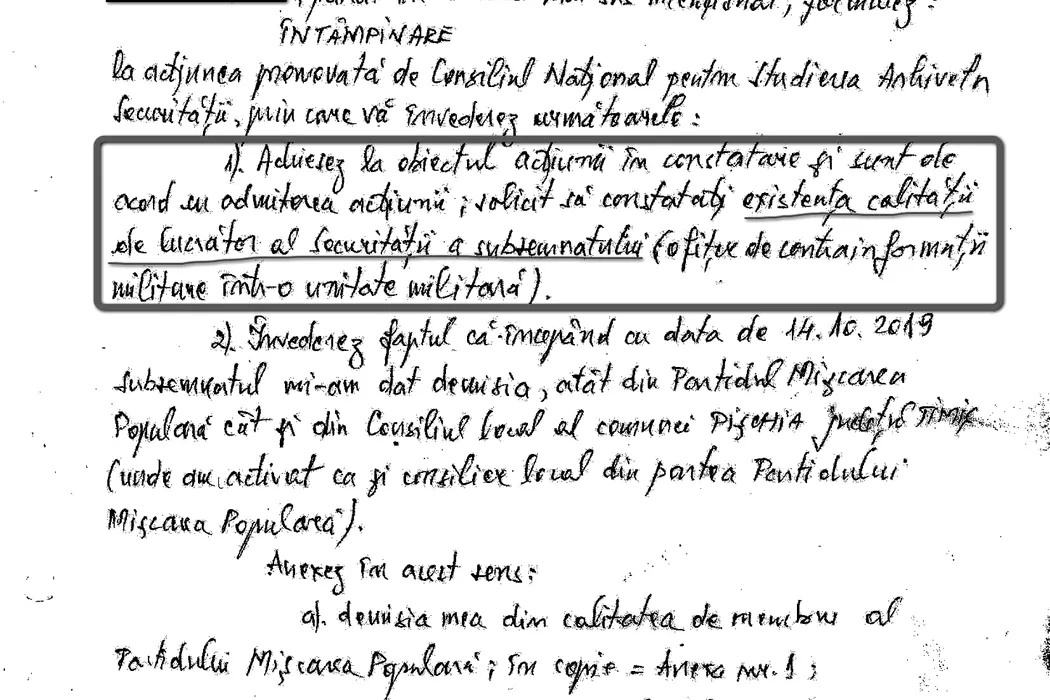 mai sus menționat, formulez :
ÎNTÂMPINARE
la acțiunea promovată de Consiliul Național pentru Studierea Arhivelor
Securității, prin care vă învederez următoarele :
1). Achiesez la obiectul acțiunii în constatare și sunt de
acord cu admiterea acțiunii ; solicit să constatați existența calității
de lucrător al Securității a subsemnatului (ofițer de contrainformații
militare într-o unitate militară).
2). Învederez faptul că începând cu data de 14.10.2019
subsemnatul mi-am dat demisia, atât din Partidul Mișcarea
Populară cât și din Consiliul local al comunei PIȘCHIA județul TIMIȘ
(unde am activat ca și consilier local din partea Partidului
Mișcarea Populară).
Anexez în acest sens:
a). demisia mea din calitatea de membru al
Partidului Mișcarea Populară ; în copie = Anexa nr. 1 ;